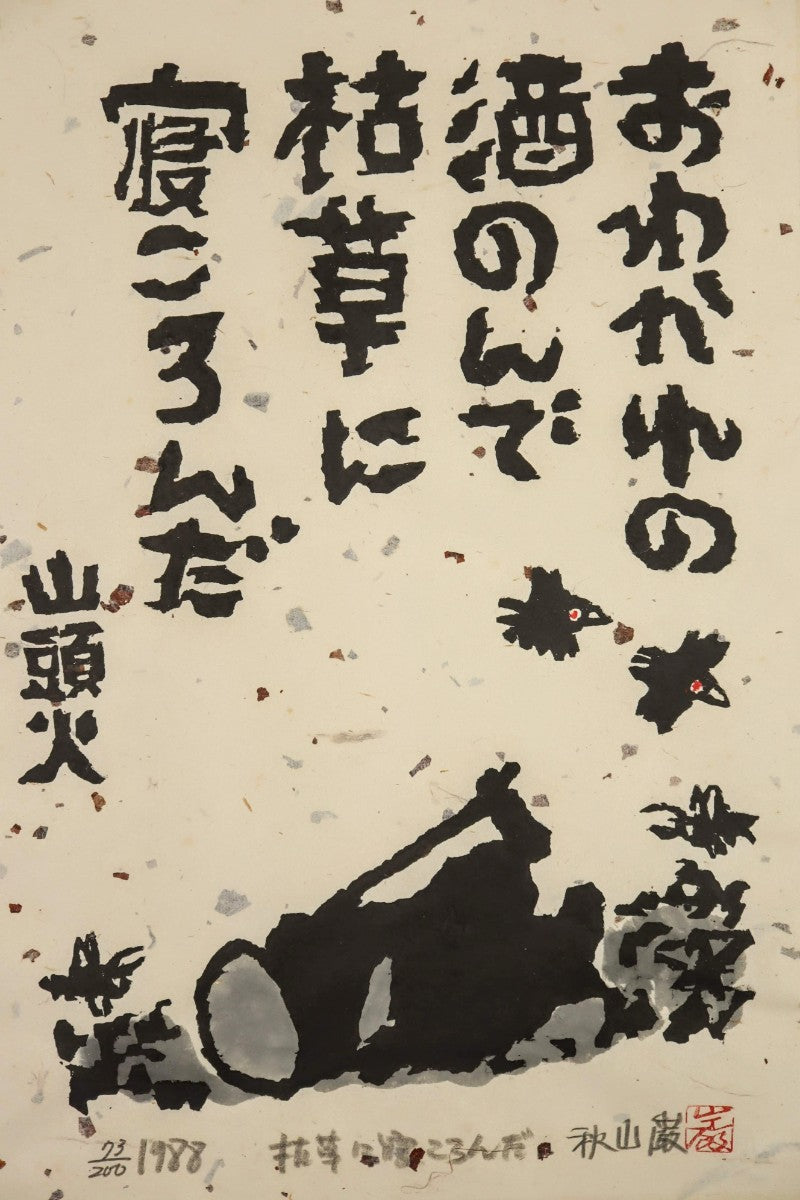 おわかれの
酒のんで
枯草に
寝ころんだ
山頭火
73/200 1988 枯草に寝ころんだ 秋山巌